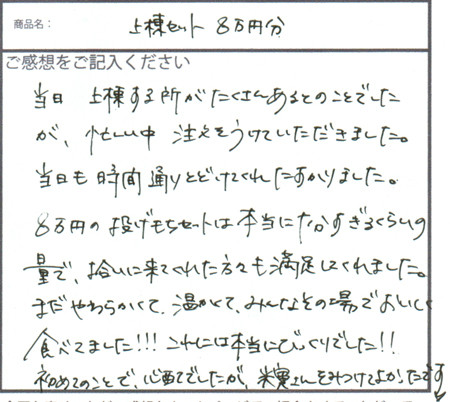 商品名： 上棟セット 8万円分
ご感想をご記入ください
当日 上棟する所がたくさんあるとのことでした
が、忙しい中 注文をうけていただきました。
当日も時間通りとどけてくれたすかりました。
8万円の投げもちセットは本当に十分すぎるくらいの
量で、拾いに来てくれた方々も満足してくれました。
まだやわらかくて、温かくて、みんなその場でおいしく
食べてました!!! これには本当にびっくりでした!!
初めてのことで、心配でしたが、米実さんをみつけてよかったです